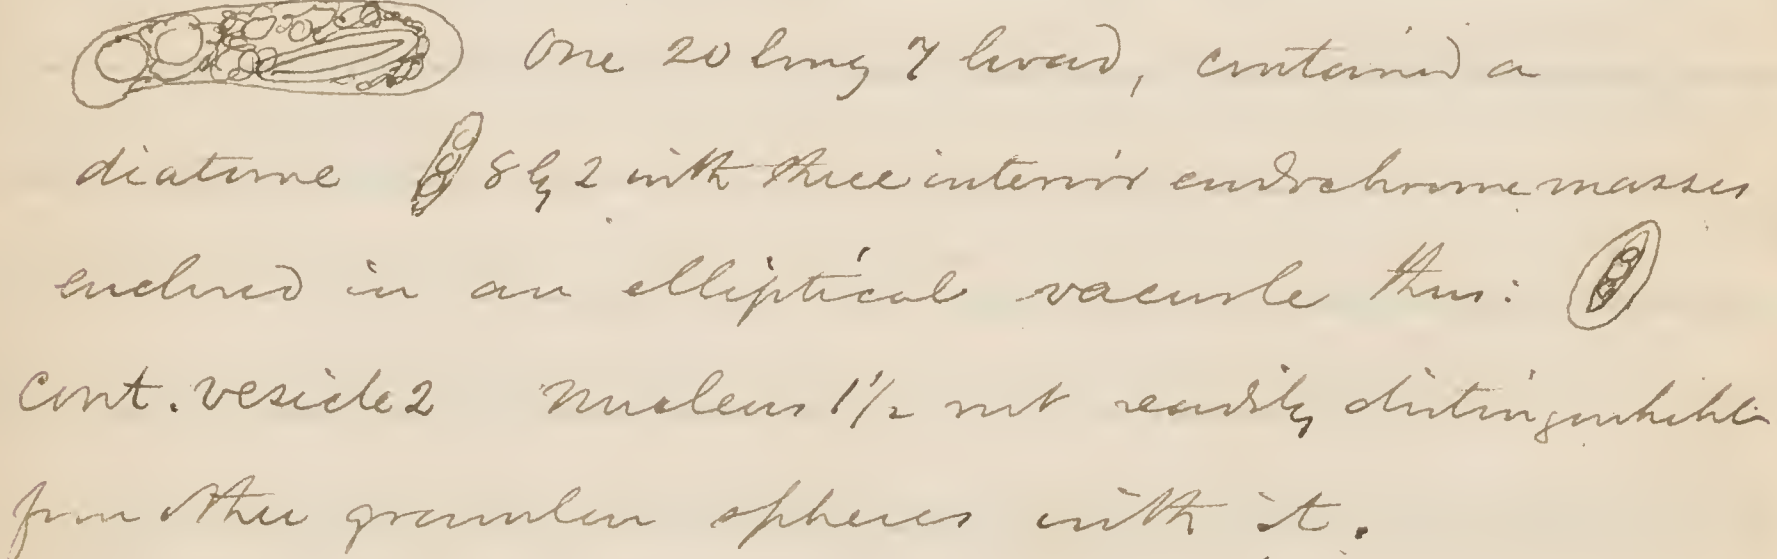 One 20 long 7 broad, contained a
diatome 8 by 2 with three interior endochrome masses
enclosed in an elliptical vacuole thus:
Cont. vesicle 2 Nucleus 1 1/2 not readily distinguishable
from other granular spheres with it.